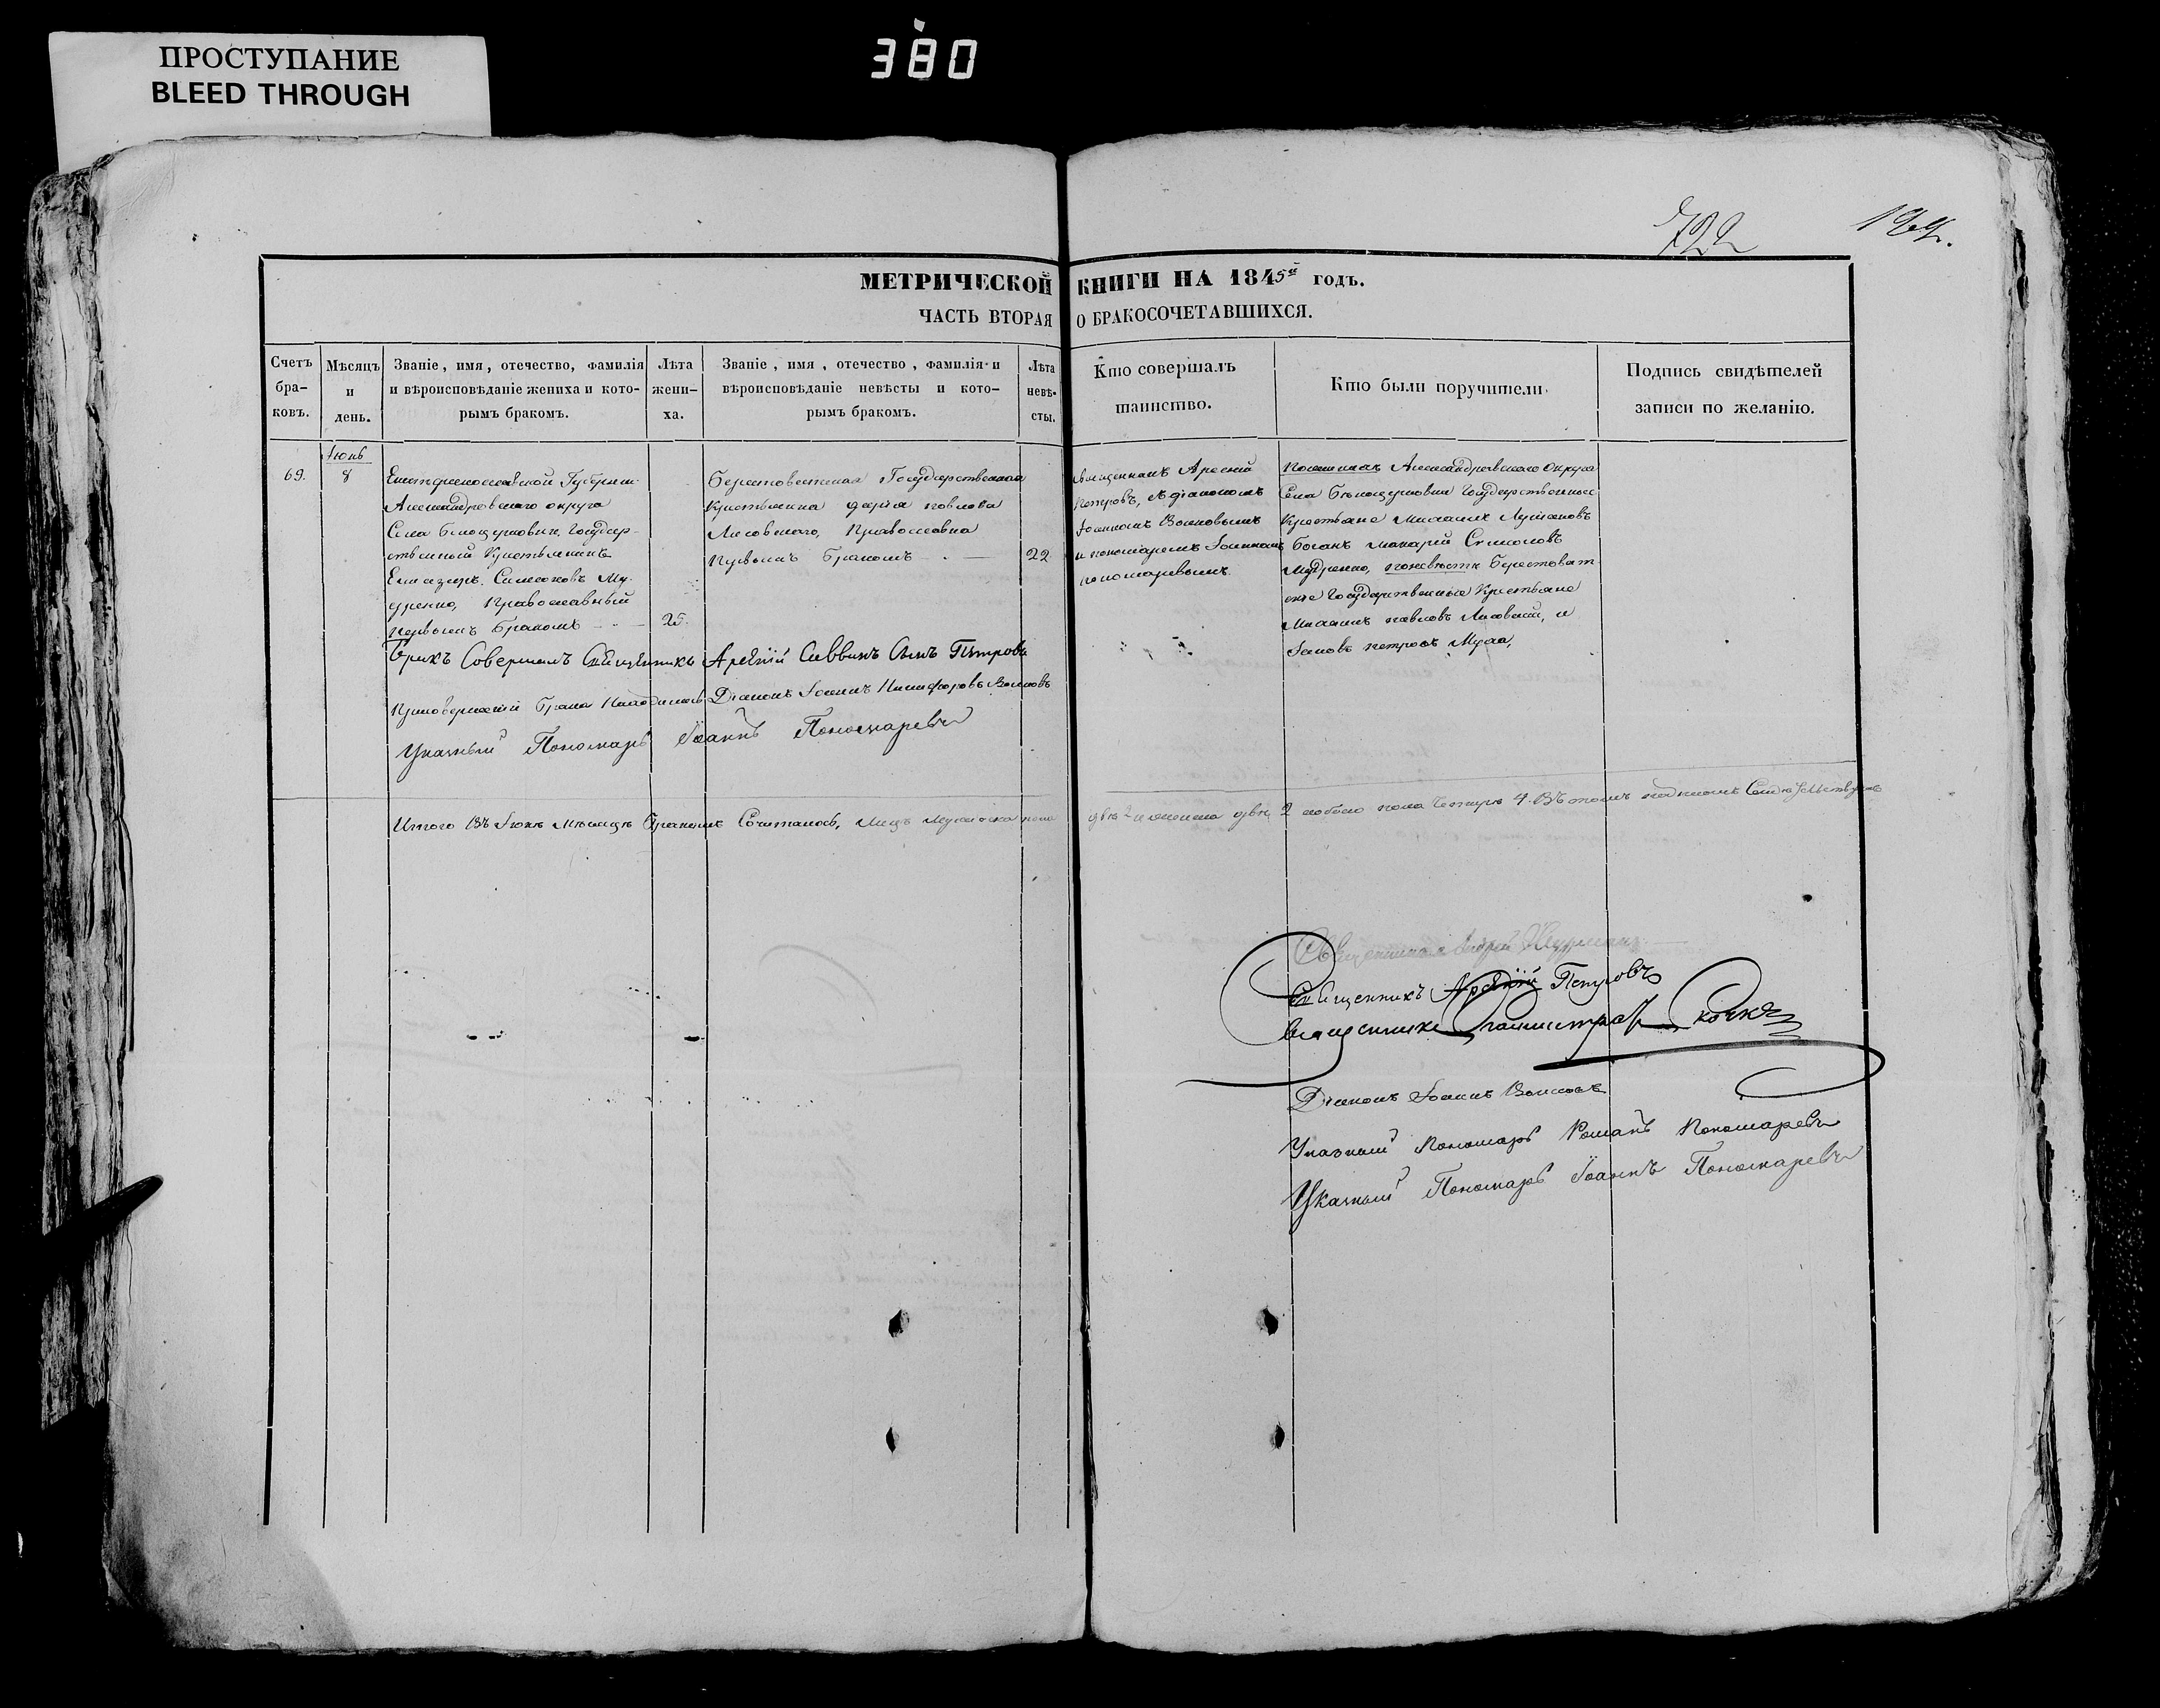 ПРОСТУПАНИЕ
BLEED THROUGH
380
722
МЕТРИЧЕСКОЙ КНИГИ НА 1845й годъ.
ЧАСТЬ ВТОРАЯ О БРАКОСОЧЕТАВШИХСЯ.
Счетъ бра-ковъ.
Мѣсяцъ и день.
Званіе, имя, отечество, фамилія
и вѣроисповѣданіе жениха и кото-
рымъ бракомъ.
Лѣта жени-ха.
Званіе, имя, отечество, фамилія и
вѣроисповѣданіе невѣсты и кото-
рымъ бракомъ.
Лѣта невѣ-сты.
Кто совершалъ
таинство.
Кто были поручители.
Подпись свидѣтелей
записи по желанію.
Іюнь
69.
8
Екатеринославской Губерніи
Александровскаго округа
Села Бѣлоцерковки Государ-
ственный Крестьянинъ
Симеоновъ Му-
дренко, Православный
первымъ Бракомъ
25.
Берестовецкая Государственная
Крестьянка Дарія Павлова
Лисовскаго, Православна
первымъ Бракомъ
22
Священникъ Арсеній
Петровъ, съ діакономъ
Іоанномъ Волковымъ
и пономаремъ Іоанномъ
пономаревымъ.
По женихѣ Александровскаго Округа
Села Бѣлоцерковки Государственные
Крестьяне Михаилъ
Макарій Симеоновъ
Мудренко, по невѣстѣ Берестоват-
скіе Государственные Крестьяне
Михаилъ Павловъ Лисовскій, и
Іаковъ Петровъ Муха,
Бракъ Совершалъ Священникъ Арсеній Саввинъ Сынъ Петровъ
При совершеніи Брака Находился Діаконъ Іоаннъ Никифоровъ Волковъ
Указный Пономарь Іоаннъ Пономаревъ
Итого Въ Іюнѣ Мѣсяцѣ Бракомъ Сочеталось, Лицъ Мужеска пола два 2 и женска два 2 обоего пола Четыре 4. Въ томъ подписомъ Свидѣтельствуемъ
Священникъ Андрей
Священникъ Арсеній Петровъ
Священникъ
Діаконъ Іоаннъ Волковъ
Указный Пономарь Романъ Пономаревъ
Указный Пономарь Іоаннъ Пономаревъ